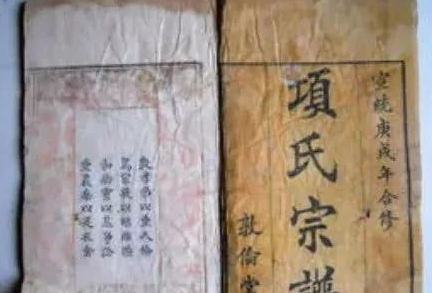 宣統庚戌年合修
項氏宗譜
敦倫堂
敦孝弟以重人倫
篤宗族以昭雍睦
和鄉黨以息爭訟
重農桑以足衣食